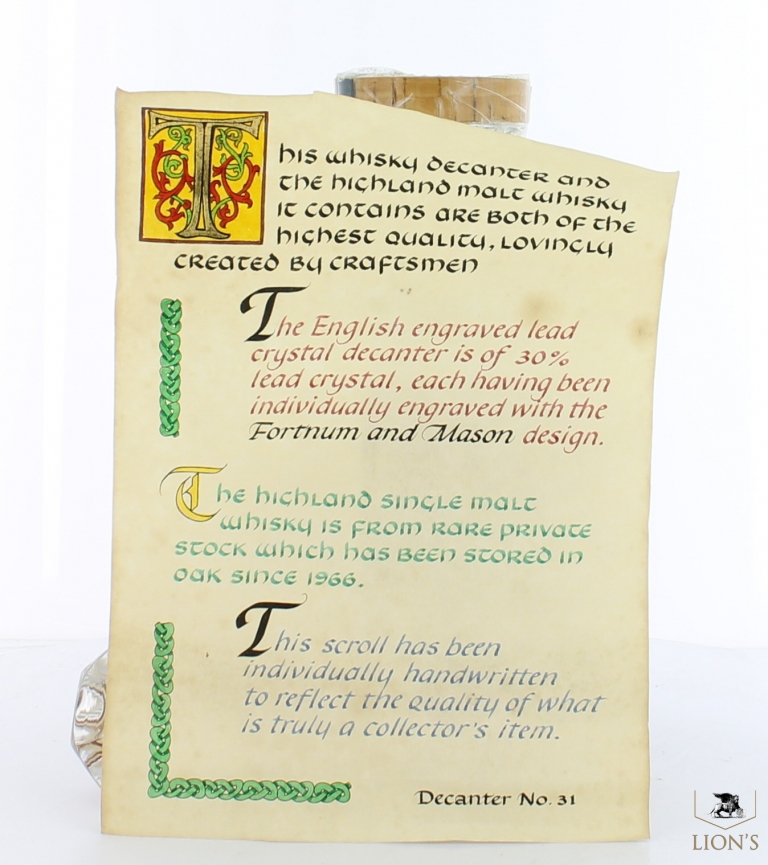 This whisky decanter and
the highland malt whisky
it contains are both of the
highest quality, lovingly
created by craftsmen
The English engraved lead
crystal decanter is of 30%
lead crystal, each having been
individually engraved with the
Fortnum and Mason design.
The highland single malt
whisky is from rare private
stock which has been stored in
oak since 1966.
This scroll has been
individually handwritten
to reflect the quality of what
is truly a collector's item.
Decanter No. 31
LION'S